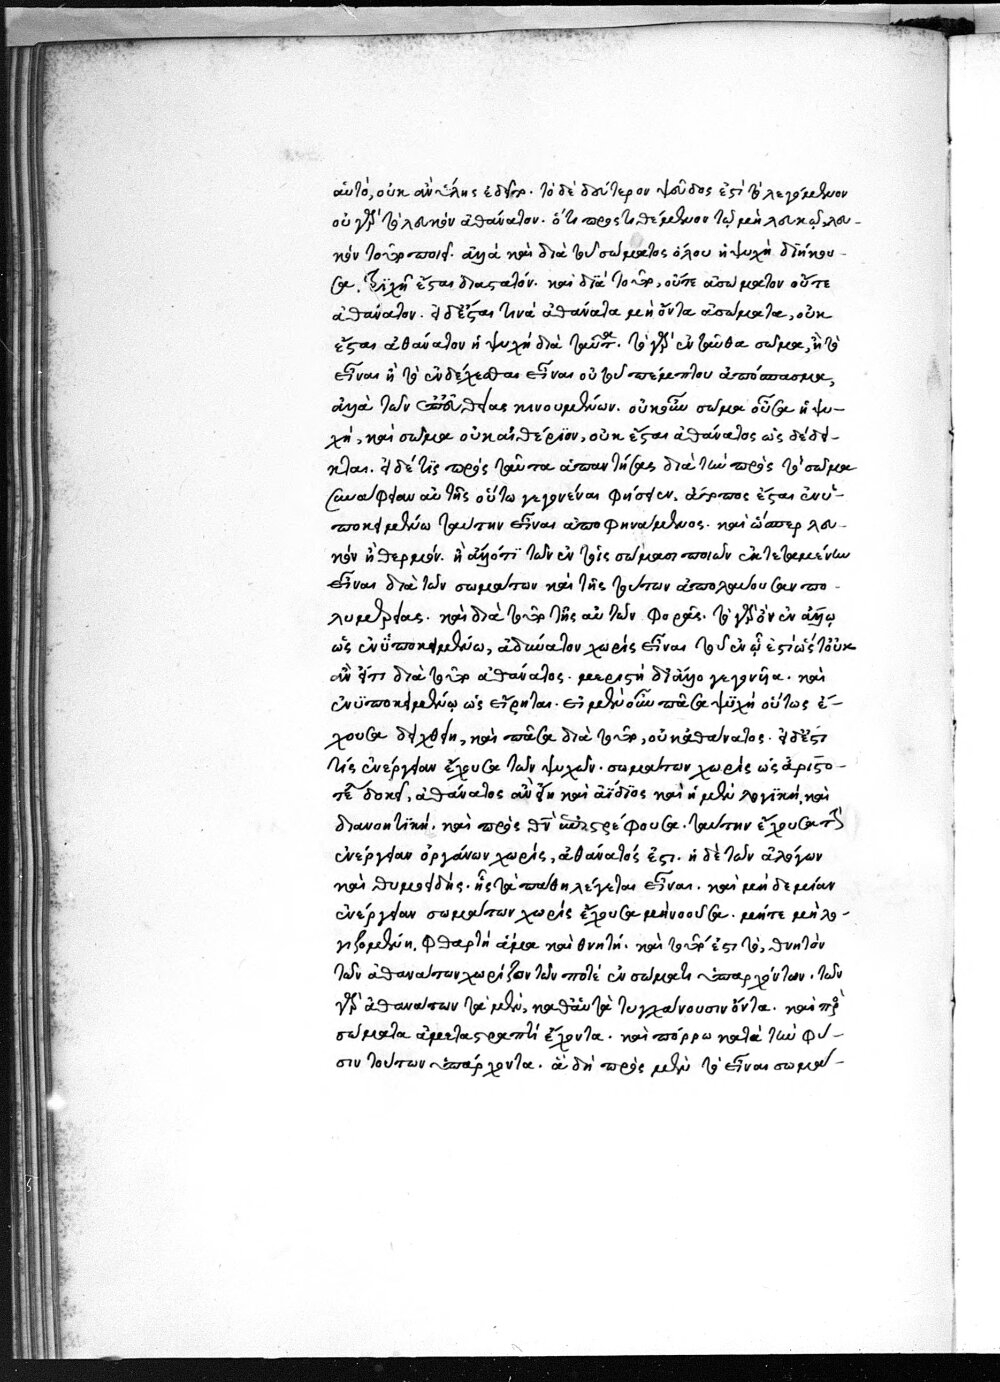 αὐτὸ, οὐκ ἂν ὕλης ἐδεῖτο. τὸ δὲ δεύτερον ψεῦδος ἐστὶ τὸ λεγόμενον
οὐ γὰρ τὸ λευκὸν ἀθάνατον. ὅτι προστιθέμενον τῷ μὴ λευκῷ, λευ-
κὸν τοῦτο ποιεῖ. ἀλλὰ καὶ διὰ τοῦ σώματος ὅλου ἡ ψυχὴ διήκου-
σα, τριχῇ ἔσται διαστατόν. καὶ διὰ τοῦτο, οὔτε ἀσώματον οὔτε
ἀθάνατον. εἰ δὲ ἔσται τινὰ ἀθάνατα μὴ ὄντα ἀσώματα, οὐκ
ἔσται ἀθάνατον ἡ ψυχὴ διὰ ταῦτα. τὸ γὰρ ἐνταῦθα σῶμα, ἢ τὸ
εἶναι ἢ τὸ ἐνδέχεσθαι εἶναι οὐ τοῦ πέμπτου ἀπόσπασμα,
ἀλλὰ τῶν ἐπ' εὐθείας κινουμένων. οὐκοῦν σῶμα οὖσα ἡ ψυ-
χὴ, καὶ σῶμα οὐκ αἰθέριον, οὐκ ἔσται ἀθάνατος ὡς δέδει-
κται. εἰ δέ τις πρὸς ταῦτα ἀπαντήσας διὰ τὴν πρὸς τὸ σῶμα
συνάφειαν αὐτῆς οὕτω γεγονέναι φήσειεν, ἄτοπος ἔσται ἐν ὑ-
ποκειμένῳ ταύτην εἶναι ἀποφηνάμενος. καὶ ὥσπερ λευ-
κὸν ἢ θερμόν. ἢ ἄλλό τι τῶν ἐν τοῖς σώμασι ποιῶν ἐκτεταμένων
εἶναι διὰ τῶν σωμάτων καὶ τῆς τούτων ἀπολαύουσαν πο-
λυμερείας. καὶ διὰ τοῦτο τῆς αὐτῶν φορᾶς. τὸ γὰρ ὂν ἐν ἄλλῳ
ὡς ἐν ὑποκειμένῳ, ἀδύνατον χωρὶς εἶναι τοῦ ἐν ᾧ ἐστὶν ὥστ' οὐκ
ἂν εἴη διὰ τοῦτο ἀθάνατος. μεριστὴ δι' ἄλλο γεγονυῖα. καὶ
ἐν ὑποκειμένῳ ὡς εἴρηται. εἰ μὲν οὖν πᾶσα ψυχὴ οὕτως ἔ-
χουσα δειχθείη, καὶ πᾶσα διὰ τοῦτο, οὐκ ἀθάνατος. εἰ δέ ἐστι
τίς ἐνέργειαν ἔχουσα τῶν ψυχῶν. σωμάτων χωρὶς ὡς ἀριστο-
τέλει δοκεῖ, ἀθάνατος ἂν εἴη καὶ ἀΐδιος καὶ ἡ μὲν λογικὴ, καὶ
διανοητικὴ. καὶ πρὸς θεὸν ἐπιστρέφουσα. ταύτην ἔχουσα τὴν
ἐνέργειαν ὀργάνων χωρὶς, ἀθάνατός ἐστι. ἡ δὲ τῶν ἀλόγων
καὶ θυμοειδὴς. ἧς τὰ πάθη λέγεται εἶναι. καὶ μηδεμίαν
ἐνέργειαν σωμάτων χωρὶς ἔχουσα μὴ νοοῦσα. μήτε μὴ λο-
γιζομένη, φθαρτὴ ἅμα καὶ θνητή. καὶ τοῦτό ἐστι τὸ, θνητὸν
τῶν ἀθανάτων χωρίζον τῶν ποτὲ ἐν σώματι ὑπαρχόντων. τῶν
γὰρ ἀθανάτων τὰ μὲν, καθ' αὑτὰ τυγχάνουσιν ὄντα. καὶ πρὸς
σώματα ἀμεταστραπτὶ ἔχοντα. καὶ πόρρω κατὰ τὴν φύ-
σιν τούτων ὑπάρχοντα. ἃ δὴ πρὸς μὲν τὸ εἶναι σωμά-